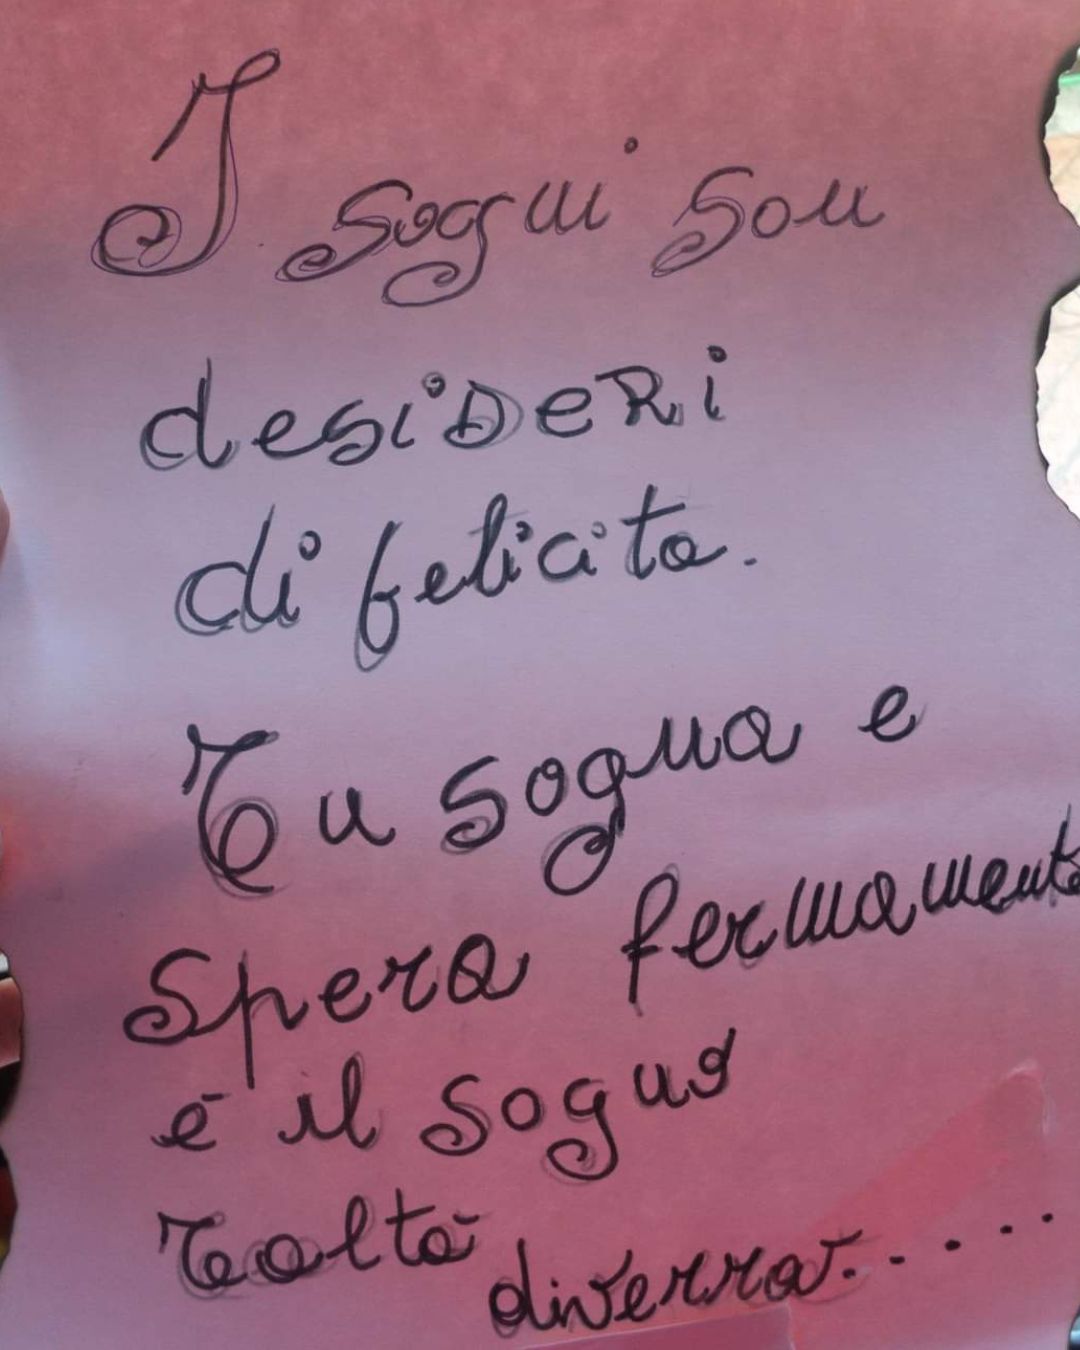 I sogni son
desideri
di felicita.
Tu sogna e
spera fermamente
e il sogno
raltà
diverrà.......